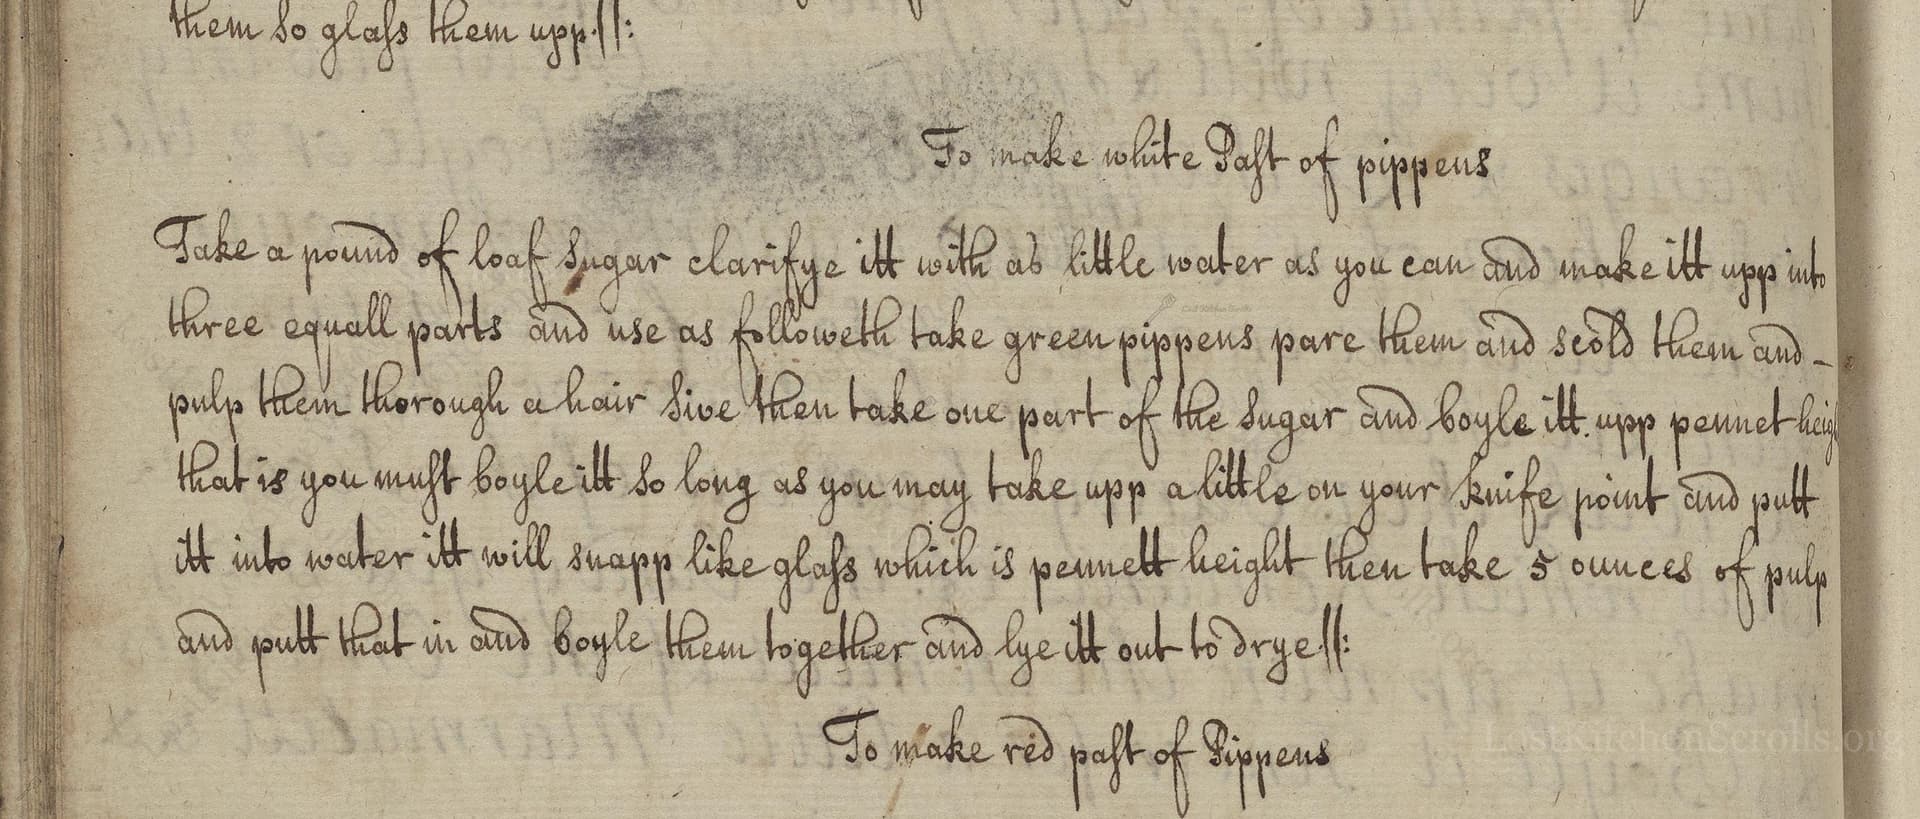 them so glass them upp.//:
To make white Past of pippens
Take a pound of loaf sugar clarifye itt with as little water as you can and make itt upp into
three equall parts and use as followeth take green pippens pare them and scold them and -
pulp them thorough a hair sive then take one part of the sugar and boyle itt upp pennet heigh
that is you must boyle itt so long as you may take upp a little on your knife point and putt
itt into water itt will snapp like glass which is pennett height then take 5 ounces of pulp
and putt that in and boyle them together and lye itt out to drye//:
To make red past of Pippens
LostKitchenScrolls.org